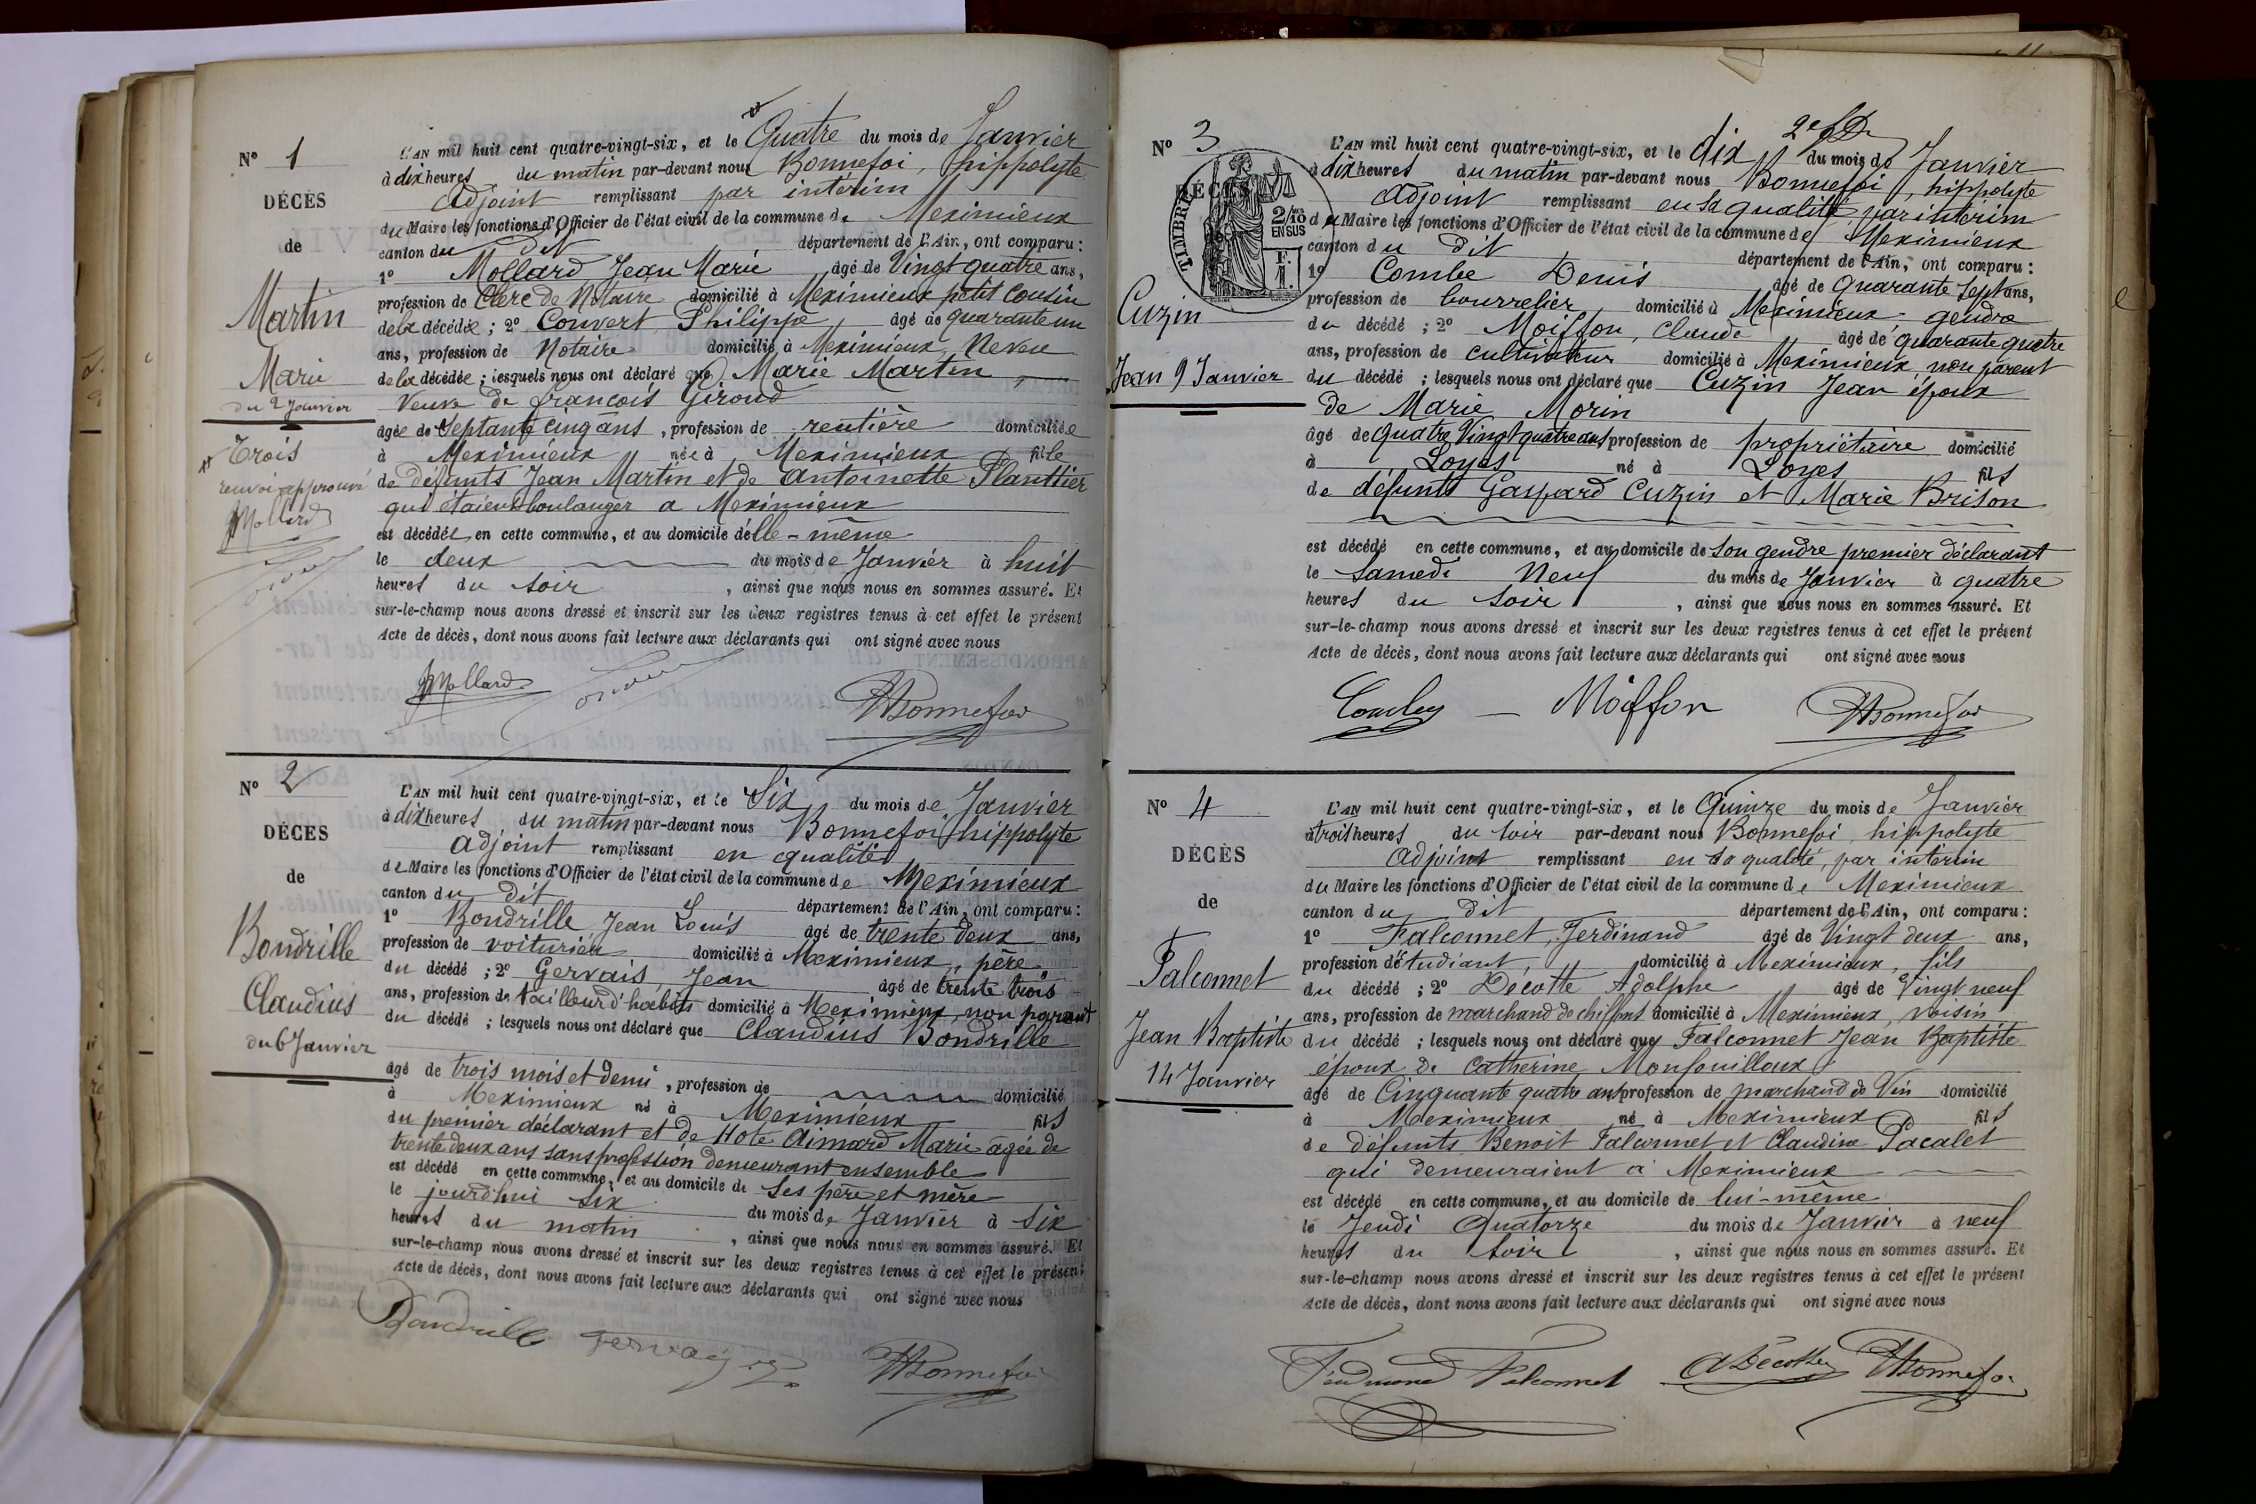 Nº 1
DÉCÈS
de
Martin
Marie
du 2 Janvier
Trois
renvoi approuvé
JMollard
L'AN mil huit cent quatre-vingt-six, et le Quatre du mois de Janvier
à dix heures du matin par-devant nous Bonnefoi, hippolyte
adjoint remplissant par intérim
du Maire les fonctions d'Officier de l'état civil de la commune de Meximieux
canton du dit département de l'Ain, ont comparu :
1º Mollard Jean Marie âgé de Vingt quatre ans,
profession de Clerc de Notaire domicilié à Meximieux petit Cousin
de la décédée ; 2º Convert Philippe, âgé de quarante un
ans, profession de Notaire domicilié à Meximieux, Neveu
de la décédée ; lesquels nous ont déclaré que Marie Martin,
Veuve de françois Giroud
âgée de Septante cinq ans, profession de rentière domiciliée
à Meximieux née à Meximieux fille
de défunts Jean Martin et de Antoinette Planttier
qui étaient boulanger a Meximieux
est décédée en cette commune, et au domicile d'elle-même
le deux du mois de Janvier à huit
heures du soir, ainsi que nous nous en sommes assuré. Et
sur-le-champ nous avons dressé et inscrit sur les deux registres tenus à cet effet le présent
Acte de décès, dont nous avons fait lecture aux déclarants qui ont signé avec nous
JMollard HBonnefoi
Nº 2
DÉCÈS
de
Bondrille
Claudius
du 6 Janvier
L'AN mil huit cent quatre-vingt-six, et le Six du mois de Janvier
à dix heures du matin par-devant nous Bonnefoi, hippolyte
adjoint remplissant en qualité
de Maire les fonctions d'Officier de l'état civil de la commune de Meximieux
canton du dit département de l'Ain, ont comparu :
1º Bondrille, Jean Louis âgé de trente deux ans,
profession de voiturier domicilié à Meximieux, père
du décédé ; 2º Gervais, Jean âgé de trente trois
ans, profession de tailleur d'habits domicilié à Meximieux, non parent
du décédé ; lesquels nous ont déclaré que Claudius Bondrille
âgé de trois mois et demi, profession de domicilié
à Meximieux né à Meximieux fils
du premier déclarant et de Hote Aimard Marie âgée de
trente deux ans sans profession demeurant ensemble
est décédé en cette commune, et au domicile de Ses père et mère
le jourd'hui six du mois de Janvier à six
heures du matin, ainsi que nous nous en sommes assuré. Et
sur-le-champ nous avons dressé et inscrit sur les deux registres tenus à cet effet le présent
Acte de décès, dont nous avons fait lecture aux déclarants qui ont signé avec nous
Bondrille Gervais HBonnefoi
Nº 3
DÉCÈS
TIMBRE
2/10 EN SUS
F. 1.
Cuzin
Jean 9 Janvier
L'AN mil huit cent quatre-vingt-six, et le dix du mois de Janvier
à dix heures du matin par-devant nous Bonnefoi, hippolyte
adjoint remplissant en sa qualité par intérim
du Maire les fonctions d'Officier de l'état civil de la commune de Meximieux
canton du dit département de l'Ain, ont comparu :
1º Combe Denis âgé de quarante sept ans,
profession de bourrelier domicilié à Meximieux gendre
du décédé ; 2º Moiffon, Claude âgé de quarante quatre
ans, profession de cultivateur domicilié à Meximieux, non parent
du décédé ; lesquels nous ont déclaré que Cuzin Jean époux
de Marie Morin
âgé de quatre Vingt quatre ans profession de propriétaire domicilié
à Loyes né à Loyes fils
de défunts Gaspard Cuzin et Marie Brison
est décédé en cette commune, et au domicile de son gendre premier déclarant
le Samedi Neuf du mois de Janvier à quatre
heures du soir, ainsi que nous nous en sommes assuré. Et
sur-le-champ nous avons dressé et inscrit sur les deux registres tenus à cet effet le présent
Acte de décès, dont nous avons fait lecture aux déclarants qui ont signé avec nous
Moiffon HBonnefoi
Nº 4
DÉCÈS
de
Falconnet
Jean Baptiste
14 Janvier
L'AN mil huit cent quatre-vingt-six, et le Quinze du mois de Janvier
à trois heures du soir par-devant nous Bonnefoi, hippolyte
adjoint remplissant en sa qualité, par intérim
du Maire les fonctions d'Officier de l'état civil de la commune de Meximieux
canton du dit département de l'Ain, ont comparu :
1º Falconnet, Ferdinand âgé de Vingt deux ans,
profession d'étudiant, domicilié à Meximieux, fils
du décédé ; 2º Décotte Adolphe âgé de Vingt neuf
ans, profession de marchand de chiffons domicilié à Meximieux, voisin
du décédé ; lesquels nous ont déclaré que Falconnet Jean Baptiste
époux de Catherine Monfouilloux
âgé de Cinquante quatre ans profession de marchand de Vin domicilié
à Meximieux né à Meximieux fils
de défunts Benoit Falconnet et Claudine Pacalet
qui demeuraient à Meximieux
est décédé en cette commune, et au domicile de lui-même
le Jeudi Quatorze du mois de Janvier à neuf
heures du soir, ainsi que nous nous en sommes assuré. Et
sur-le-champ nous avons dressé et inscrit sur les deux registres tenus à cet effet le présent
Acte de décès, dont nous avons fait lecture aux déclarants qui ont signé avec nous
Ferdinand Falconnet ADécotte HBonnefoi